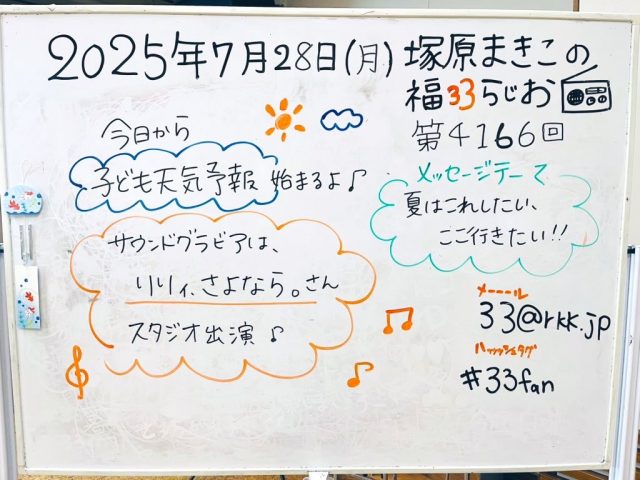 2025年7月28日(月)
塚原まきこの
福33らじお
第4166回
今日から
子ども天気予報 始まるよ♪
メッセージテーマ
夏はこれしたい、
ここ行きたい!!
サウンドグラビアは、
りりィ、さよなら。さん
スタジオ出演♪
メーール
33@rkk.jp
ハッッシュタグ
#33fan